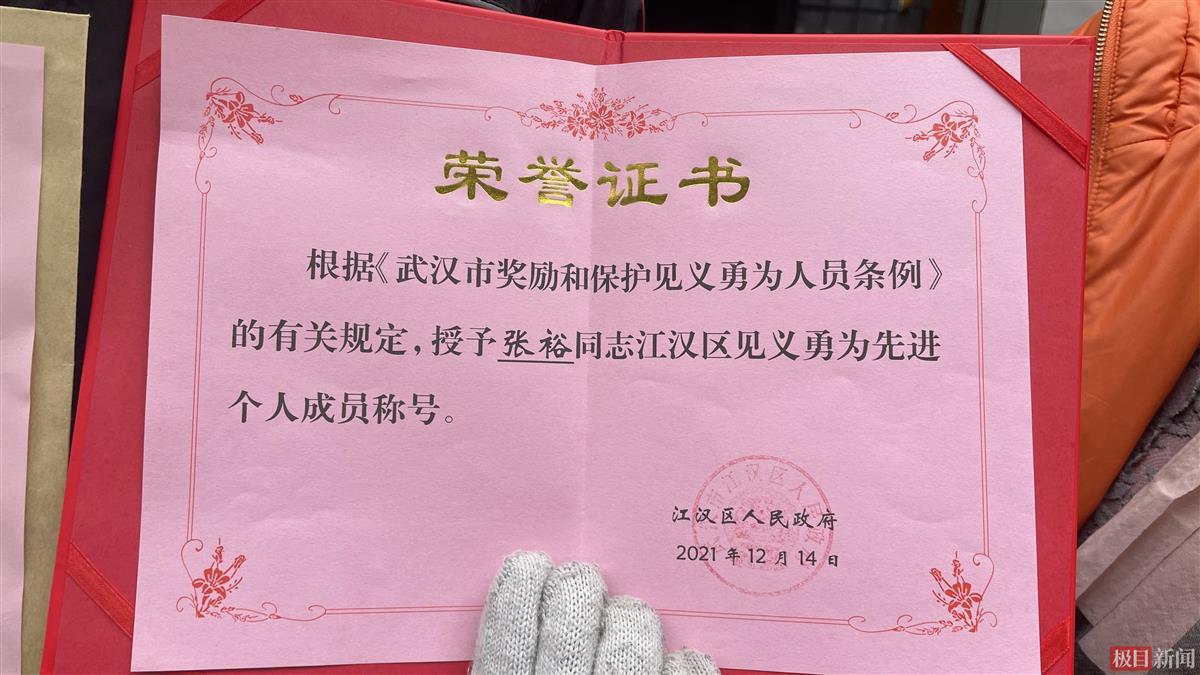 荣誉证书
根据《武汉市奖励和保护见义勇为人员条例》
的有关规定，授予张裕同志江汉区见义勇为先进
个人成员称号。
江汉区人民政府
2021 年 12 月 14 日
市江汉区人民政
极目新闻